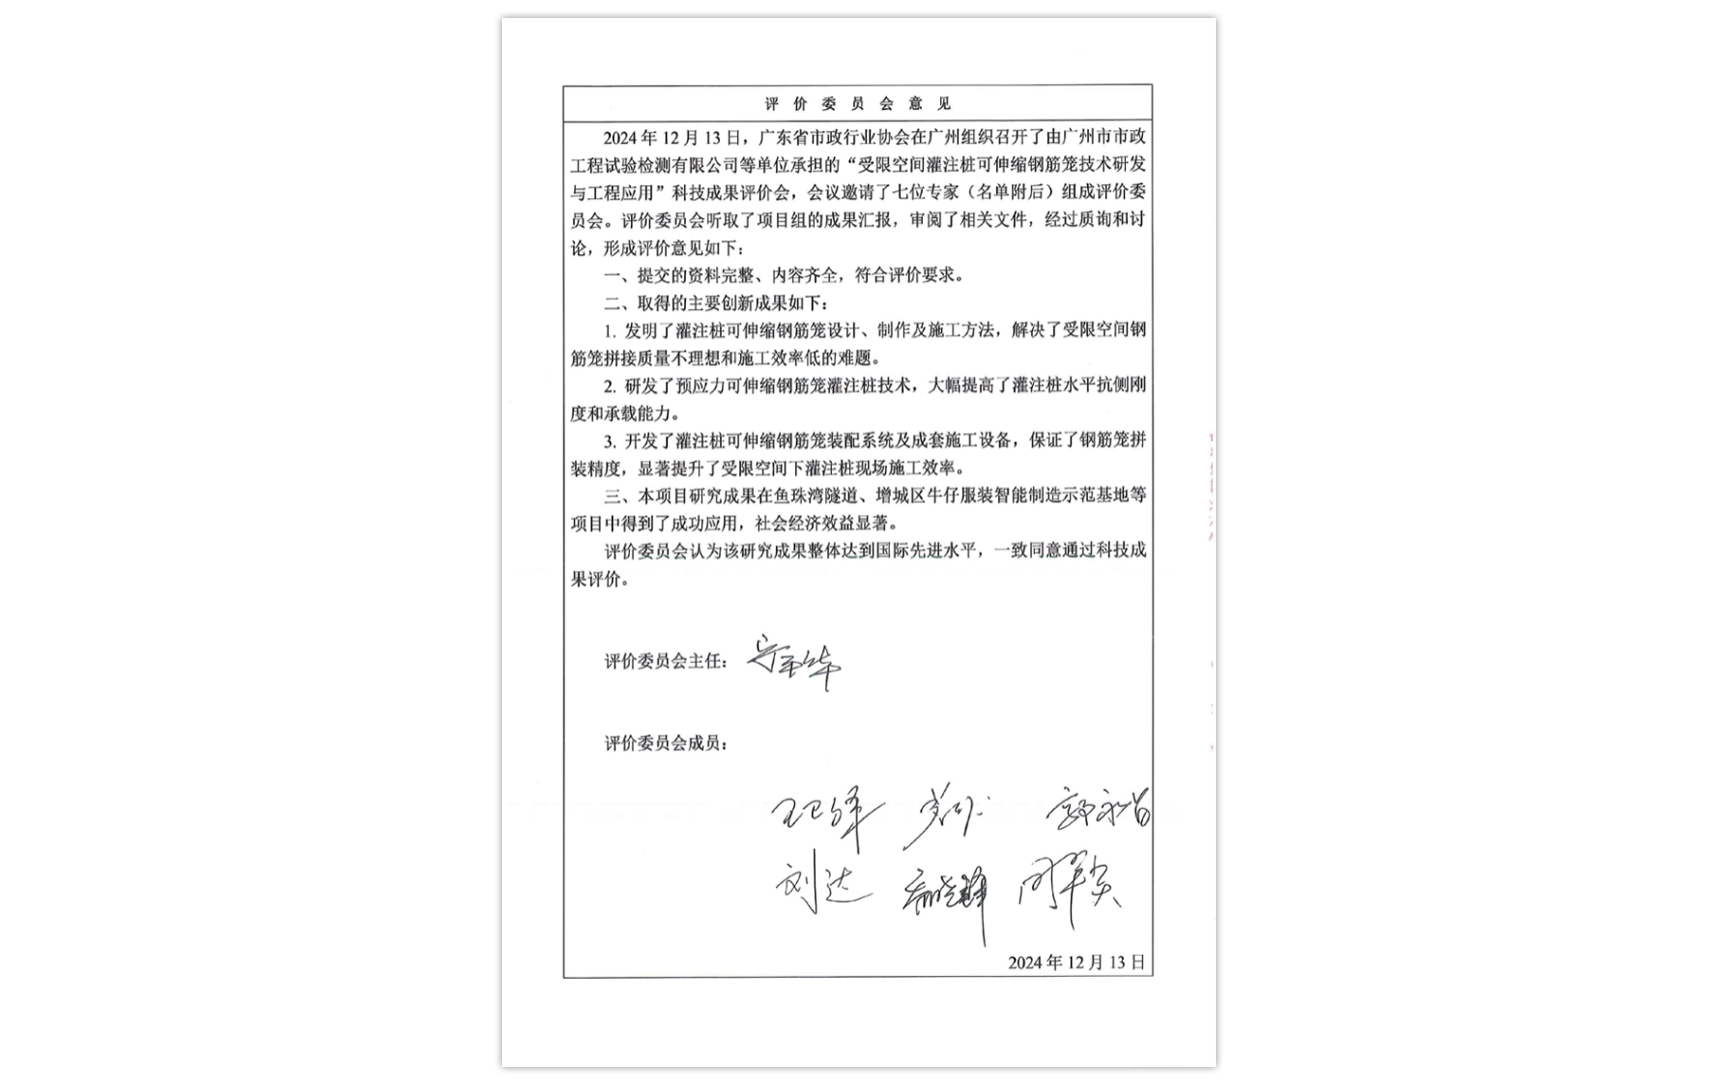 评价委员会意见
2024年12月13日，广东省市政行业协会在广州组织召开了由广州市市政
工程试验检测有限公司等单位承担的“受限空间灌注桩可伸缩钢筋笼技术研发
与工程应用”科技成果评价会，会议邀请了七位专家（名单附后）组成评价委
员会。评价委员会听取了项目组的成果汇报，审阅了相关文件，经过质询和讨
论，形成评价意见如下：
一、提交的资料完整、内容齐全，符合评价要求。
二、取得的主要创新成果如下：
1. 发明了灌注桩可伸缩钢筋笼设计、制作及施工方法，解决了受限空间钢
筋笼拼接质量不理想和施工效率低的难题。
2. 研发了预应力可伸缩钢筋笼灌注桩技术，大幅提高了灌注桩水平抗侧刚
度和承载能力。
3. 开发了灌注桩可伸缩钢筋笼装配系统及成套施工设备，保证了钢筋笼拼
装精度，显著提升了受限空间下灌注桩现场施工效率。
三、本项目研究成果在鱼珠湾隧道、增城区牛仔服装智能制造示范基地等
项目中得到了成功应用，社会经济效益显著。
评价委员会认为该研究成果整体达到国际先进水平，一致同意通过科技成
果评价。
评价委员会主任：
评价委员会成员：
刘达
2024年12月13日